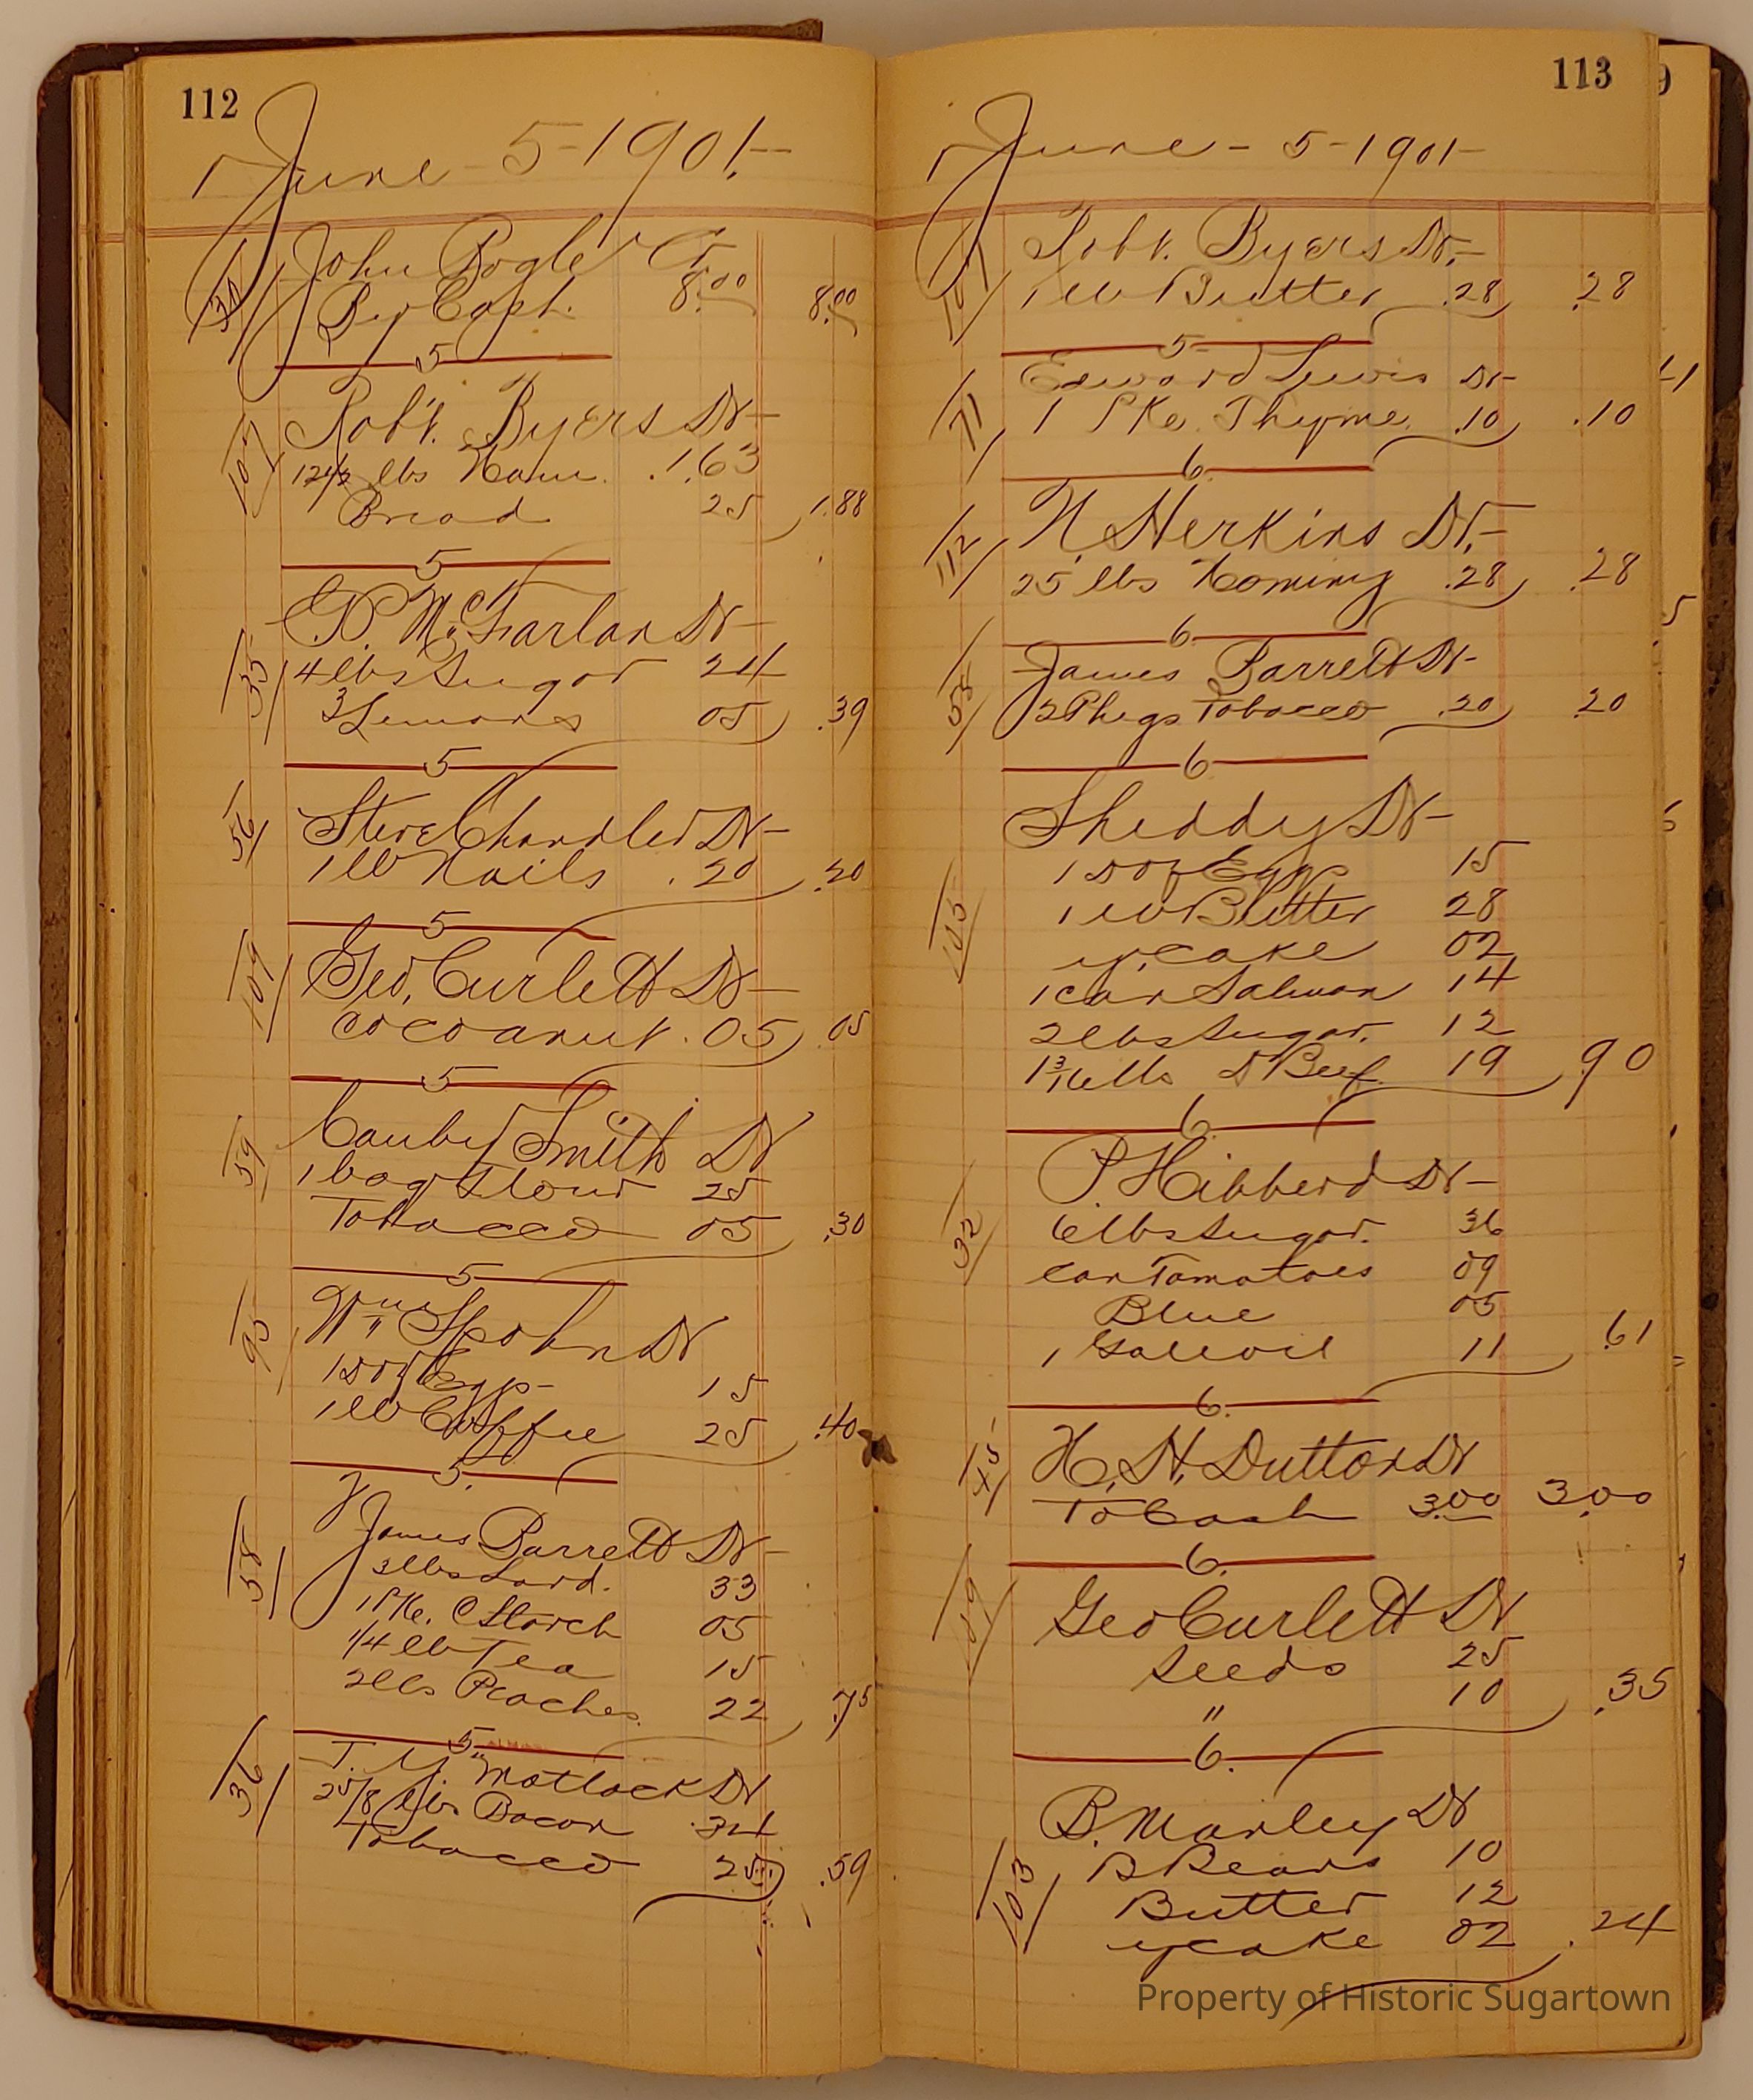 112
June - 5 - 1901.--
30
John Pogle Cr
By Cash. 8.00 8.00
5
107
Robt. Byers Dr-
12 1/2 lbs Ham. 1.63
Bread 25 1.88
5
35
G.P. McFarlan Dr-
4 lbs Sugar 24
3 Lemons 05 .39
5
56
Steve Chandler Dr-
1 lb Nails .20 .20
5
109
Geo. Curlett Dr-
Cocoanut .05 .05
5
59
Canby Smith Dr
1 bag Flour 25
Tobacco 05 .30
5
95
Wm Spohn Dr
1 Doz Eggs- 15
1 lb Coffee 25 .40
5.
58
James Barrett Dr-
3 lbs Lard. 33
1 PKe. C Starch 05
1/4 lb Tea 15
2 lbs Peaches. 22 .75
5
36
T. Y. Matlack Dr
2 5/8 lbs Bacon .34
Tobacco 25 .59
113
June - 5 - 1901-
107
Robt. Byers Dr.-
1 lb Butter .28 .28
5-
71
Edward Lewis Dr-
1 PKe. Thyme .10 .10
6.
112
N. Herkins Dr.-
25 lbs Hominy .28 .28
6
58
James Barrett Dr-
2 Plugs Tobacco .20 .20
6
105
Sheddy Dr-
1 Doz Eggs 15
1 lb Butter 28
y. cake 02
1 can Salmon 14
2 lbs Sugar. 12
1 3/16 lbs D Beef. 19 .90
6.
32
P. Hibberd Dr-
6 lbs Sugar. 36
can Tomatoes 09
Blue 05
1 Gal oil 11 .61
6.
45
H. H. Dutton Dr
To Cash 3.00 3.00
6.
Geo Curlett Dr
Seeds 25
" 10 .35
6.
103
B. Manley Dr
B Beans 10
Butter 12
y cake 02 .24
Property of Historic Sugartown